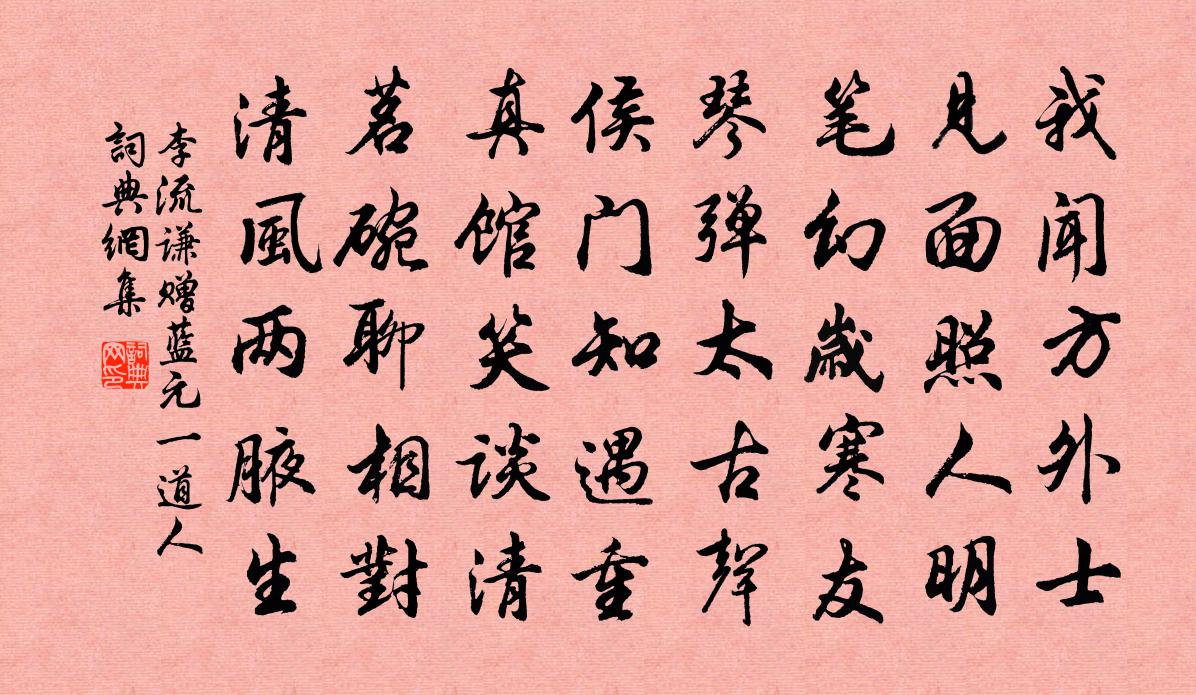 我闻方外士
见面照人明
笔幻歲寒友
琴弹太古聲
侯门知遇重
真馆笑谈清
茗碗聊相對
清風两腋生
李流谦赠蓝元一道人
詞典網集
詞典网印